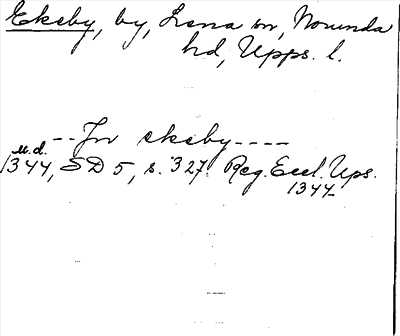 Ekeby, by, Lena sn, Norunda
hd, Upps. l.
--Jn ekeby----
u.d.
1344, SD 5, s. 327. Reg. Eccl. Ups.
1344